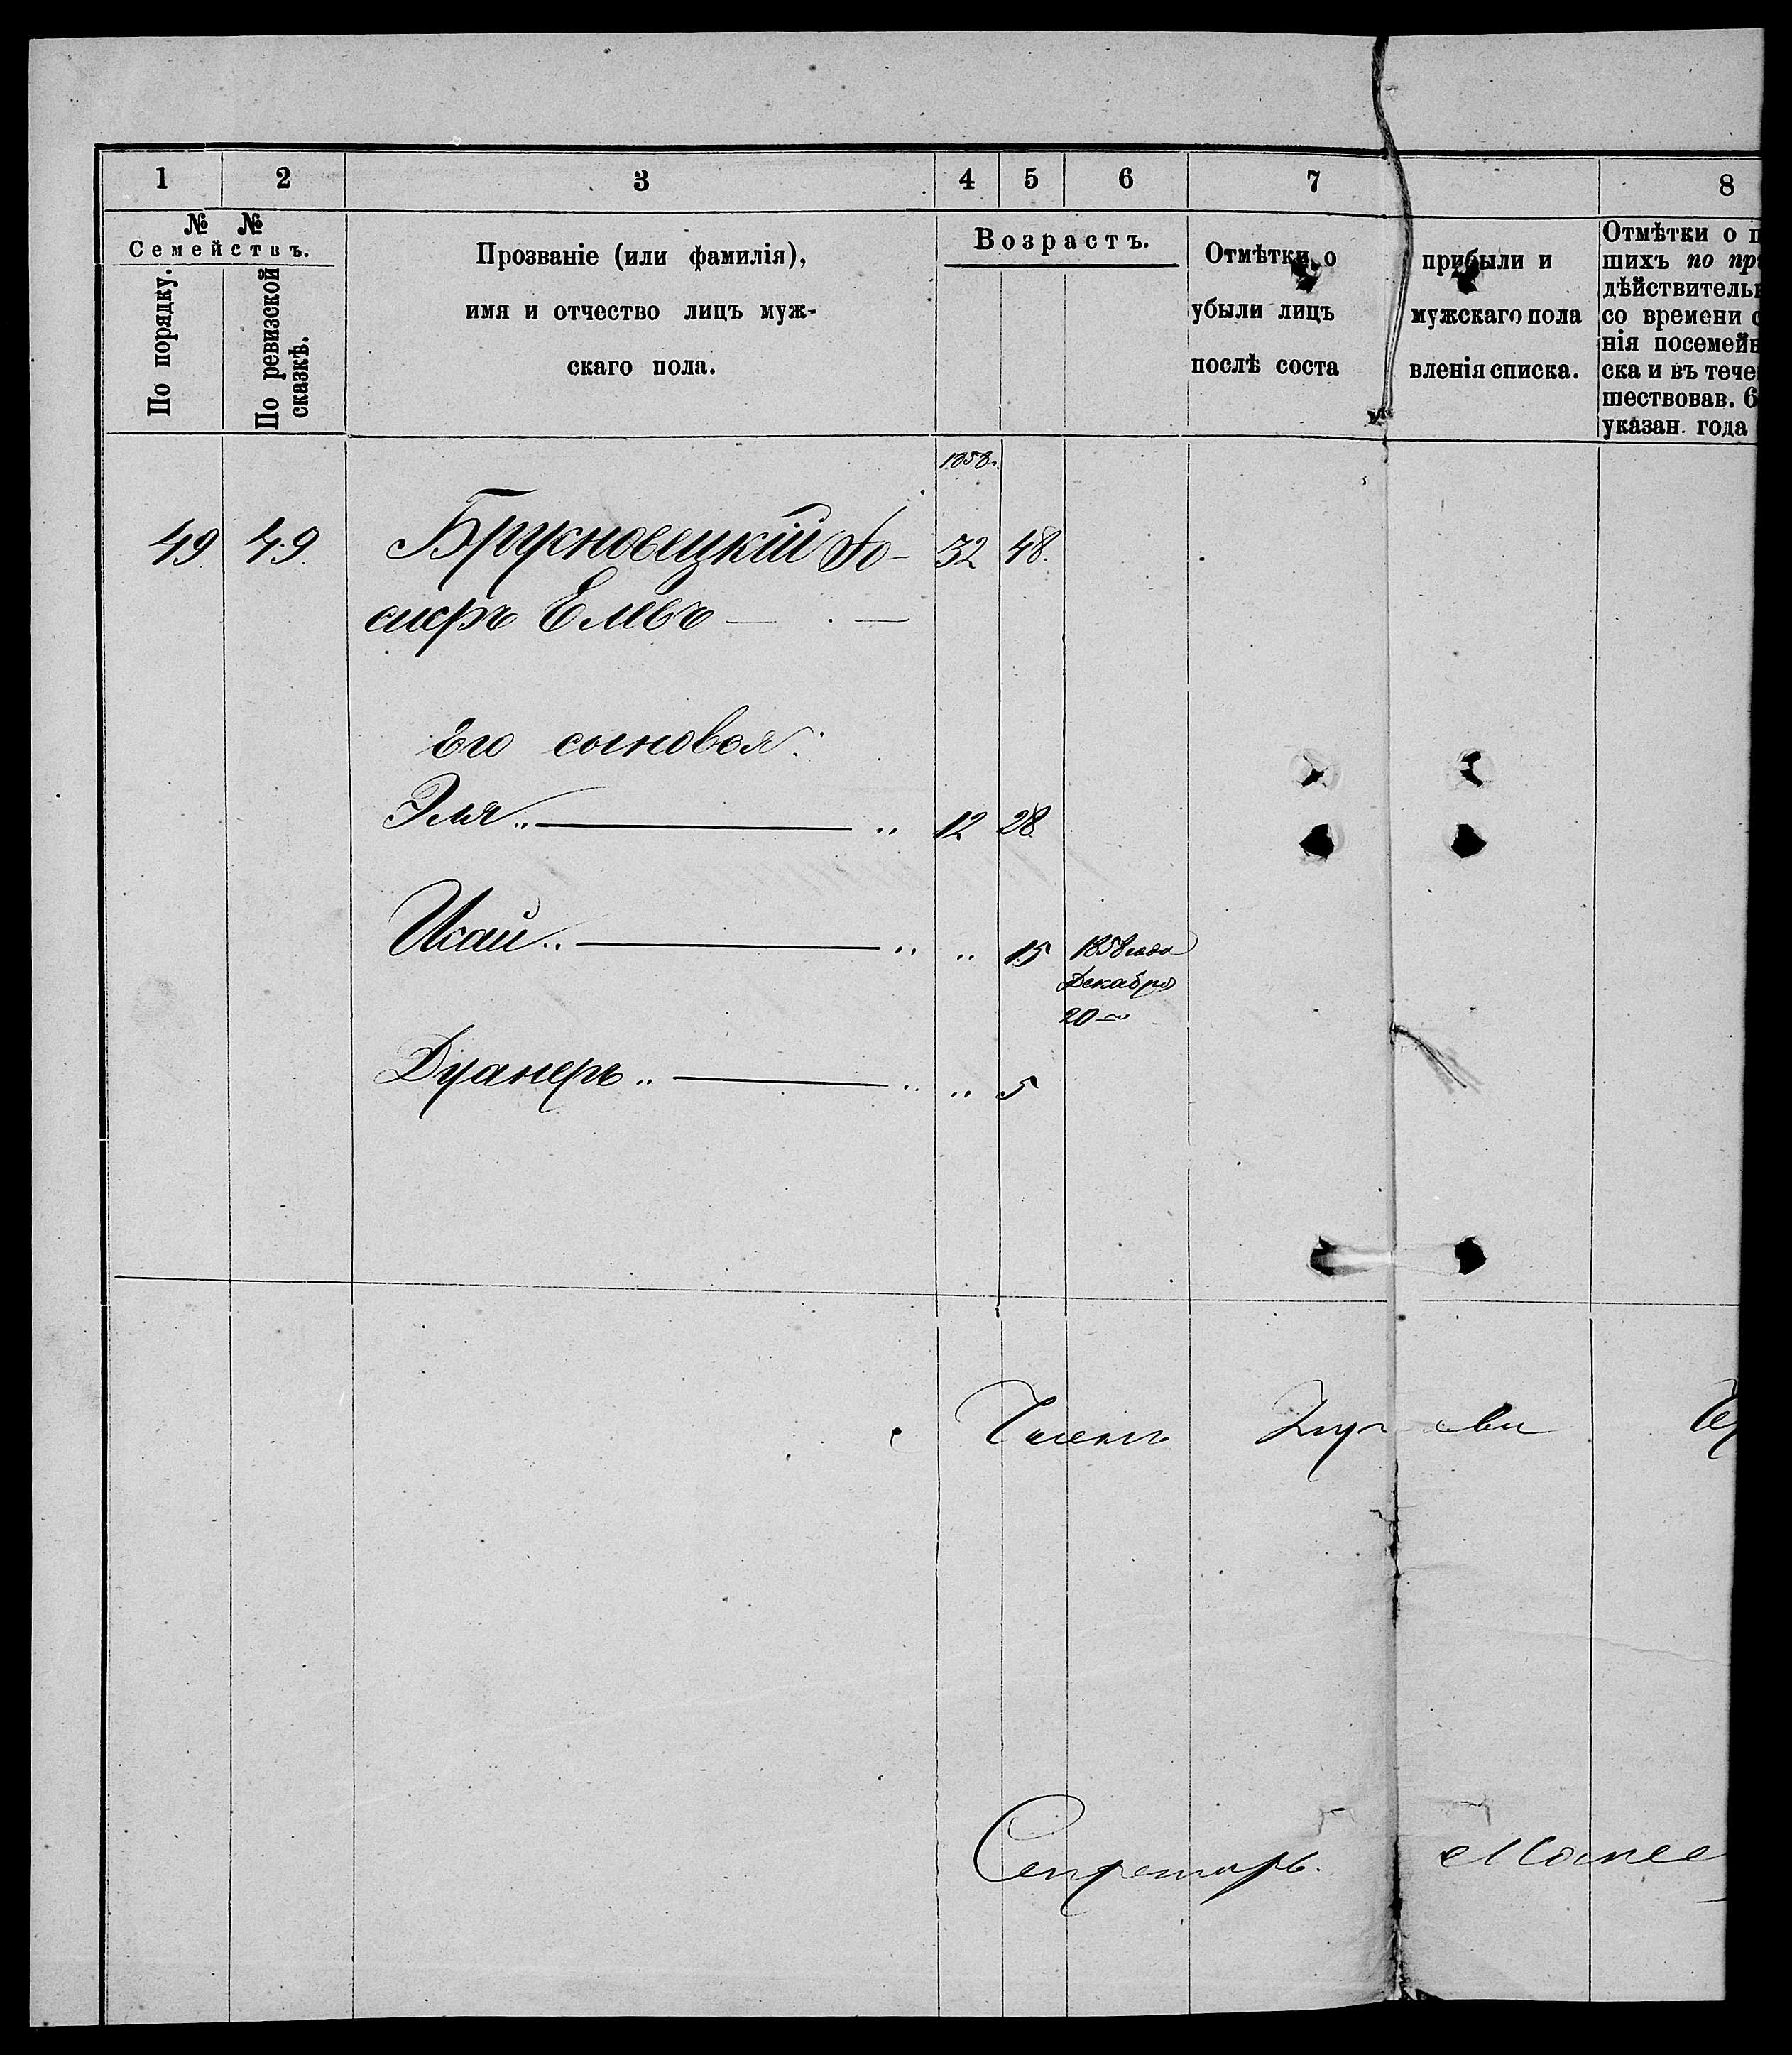 1 2 3 4 5 6 7 8
№ №
Семействъ.
По порядку.
По ревизской сказкѣ.
Прозваніе (или фамилія),
имя и отчество лицъ муж-
скаго пола.
Возрастъ.
Отмѣтки о прибыли и
убыли лицъ мужскаго пола
послѣ составленія списка.
Отмѣтки о п
шихъ по пр
дѣйствитель
со времени с
нія посемейн
ска и въ тече
шествовав. 6
указан. года
1858.
49 49. Брусновецкій 32 48.
Его сыновья:
Эля „ — „ 12 28
Исай „ — „ „ 15 1858 года
Декабря
20 го
Дуанеръ „ — „ „ 5
Членъ
Секретарь.